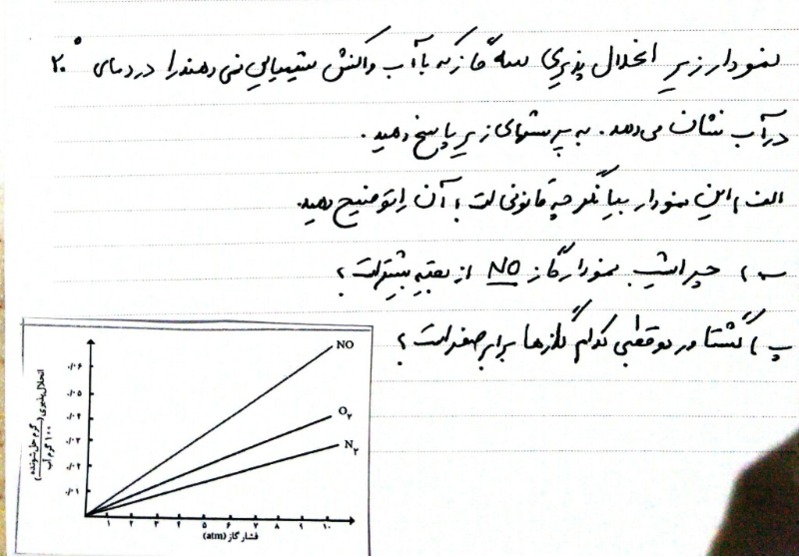 نمودار زیر انحلال پذیری سه گاز که با آب واکنش شیمیایی نمی دهند را در دمای ۲۰°
در آب نشان می دهد. به پرسشهای زیر پاسخ دهید.
الف) این نمودار بیانگر چه قانونی است؟ آن را توضیح دهید.
ب) چرا شیب نمودار گاز NO از بقیه بیشتر است؟
پ) گشتاور دوقطبی کدام گازها برابر صفر است؟
NO
O₂
N₂
۰/۰۶
۰/۰۵
۰/۰۴
۰/۰۳
۰/۰۲
۰/۰۱
انحلال‌پذیری (گرم حل‌شونده / ۱۰۰ گرم آب)
۱ ۲ ۳ ۴ ۵ ۶ ۷ ۸ ۹ ۱۰
فشار گاز (atm)